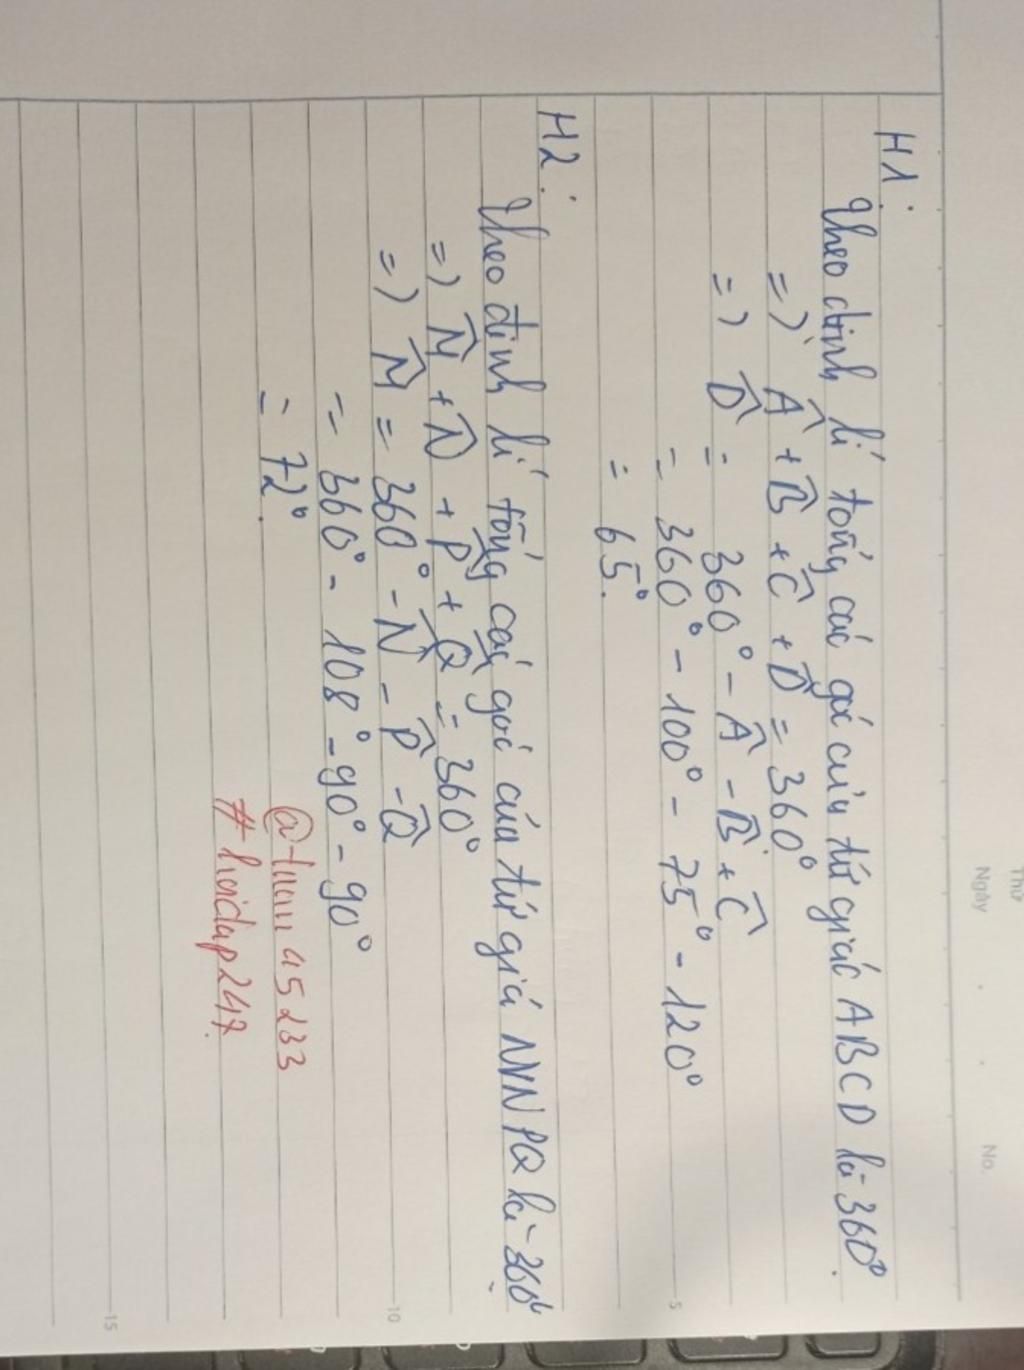 Thứ
Ngày
No.
H1:
Theo định lí tổng các góc của tứ giác ABCD là 360°.
=) Â + B̂ + Ĉ + D̂ = 360°
=) D̂ = 360° - Â - B̂ + Ĉ
= 360° - 100° - 75° - 120°
= 65°.
5
H2:
Theo định lí tổng các góc của tứ giá MNPQ là 360°
=) M̂ + N̂ + P̂ + Q̂ = 360°
=) M̂ = 360° - N̂ - P̂ - Q̂
10
= 360° - 108° - 90° - 90°
= 72°.
#hoidap247.
15